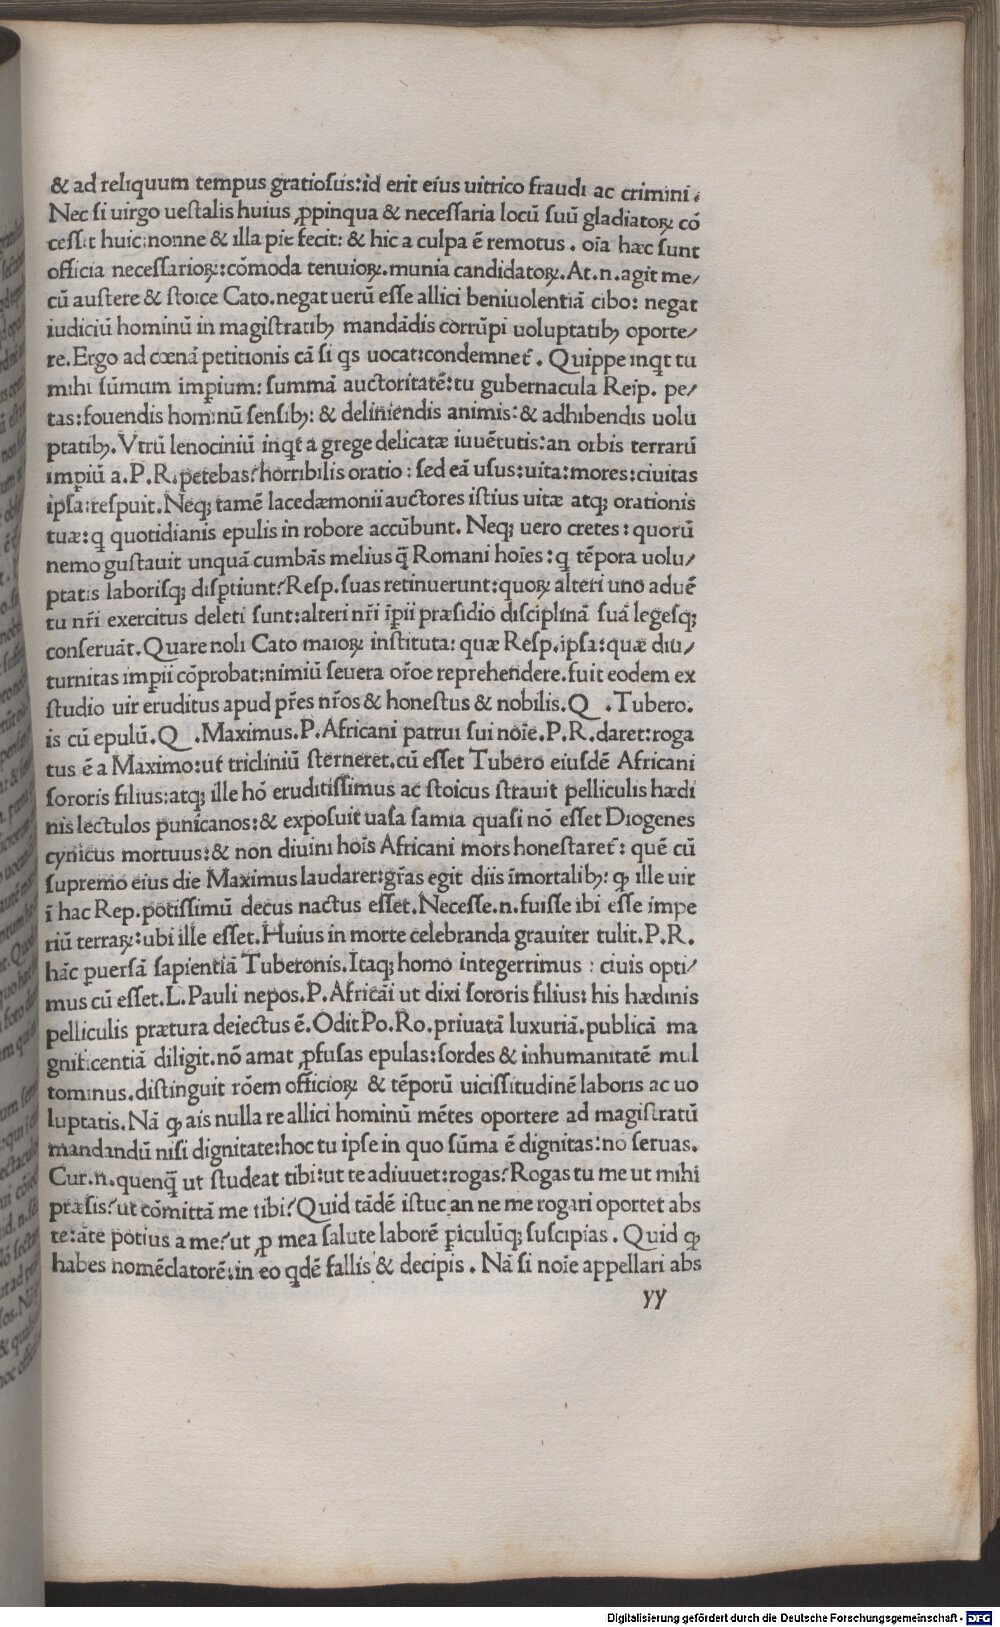 & ad reliquum tempus gratiosus: id erit eius uitrico fraudi ac crimini.
Nec si uirgo uestalis huius ꝓpinqua & necessaria locū suū gladiatoꝝ cō
cessit huic: nonne & illa pie fecit: & hic a culpa ē remotus. oīa hæc sunt
officia necessarioꝝ: cōmoda tenuioꝝ. munia candidatoꝝ. At. n. agit me/
cū austere & stoice Cato. negat uerū esse allici beniuolentiā cibo: negat
iudiciū hominū in magistratibꝫ mandādis corrūpi uoluptatibꝫ oporte/
re. Ergo ad cœnā petitionis cā si qs uocat: condemnet̄. Quippe inqt tu
mihi sūmum imꝑium: summā auctoritatē: tu gubernacula Reip. pe/
tas: fouendis hominū sensibꝫ: & deliniendis animis: & adhibendis uolu
ptatibꝫ. Vtrū lenociniū inqt a grege delicatæ iuuētutis: an orbis terrarū
imꝑiū a. P. R. petebas? horribilis oratio: sed eā usus: uita: mores: ciuitas
ipsa: respuit. Neqꝫ tamē lacedæmonii auctores istius uitæ atqꝫ orationis
tuæ: q quotidianis epulis in robore accūbunt. Neqꝫ uero cretes: quorū
nemo gustauit unquā cumbās melius q̄ Romani hoīes: q tēpora uolu/
ptatis laborisqꝫ disꝑtiunt? Resp. suas retinuerunt: quoꝝ alteri uno aduē
tu nr̄i exercitus deleti sunt: alteri nr̄i īꝑii præsidio disciplinā suā legesqꝫ
conseruāt. Quare noli Cato maioꝝ instituta: quæ Resp. ipsa: quæ diu/
turnitas imꝑii cōprobat: nimiū seuera or̄oe reprehendere. fuit eodem ex
studio uir eruditus apud pr̄es nr̄os & honestus & nobilis. Q . Tubero.
is cū epulū. Q . Maximus. P. Africani patrui sui noīe. P. R. daret: roga
tus ē a Maximo: ut tricliniū sterneret. cū esset Tubero eiusdē Africani
sororis filius: atqꝫ ille hō eruditissimus ac stoicus strauit pelliculis hædi
nis lectulos punicanos: & exposuit uasa samia quasi nō esset Diogenes
cynicus mortuus: & non diuini hoīs Africani mors honestaret̄: quē cū
supremo eius die Maximus laudaret: gr̄as egit diis īmortalibꝫ: ꝙ ille uir
ī hac Rep. potissimū decus nactus esset. Necesse. n. fuisse ibi esse impe
riū terraꝝ: ubi ille esset. Huius in morte celebranda grauiter tulit. P. R.
hāc ꝑuersā sapientiā Tuberonis. Itaqꝫ homo integerrimus : ciuis opti/
mus cū esset. L. Pauli nepos. P. Africāi ut dixi sororis filius: his hædinis
pelliculis prætura deiectus ē. Odit Po. Ro. priuatā luxuriā. publicā ma
gnificentiā diligit. nō amat ꝓfusas epulas: sordes & inhumanitatē mul
tominus. distinguit rōem officioꝝ & tēporū uicissitudinē laboris ac uo
luptatis. Nā ꝙ ais nulla re allici hominū mētes oportere ad magistratū
mandandū nisi dignitate: hoc tu ipse in quo sūma ē dignitas: no seruas.
Cur. n. quenq̄ ut studeat tibi: ut te adiuuet: rogas? Rogas tu me ut mihi
præsis? ut cōmittā me tibi? Quid tādē istuc an ne me rogari oportet abs
te: a te potius a me? ut ꝓ mea salute laborē ꝑiculūqꝫ suscipias. Quid ꝙ
habes nomēclatorē: in eo qdē fallis & decipis. Nā si noīe appellari abs
yy
Digitalisierung gefördert durch die Deutsche Forschungsgemeinschaft - DFG